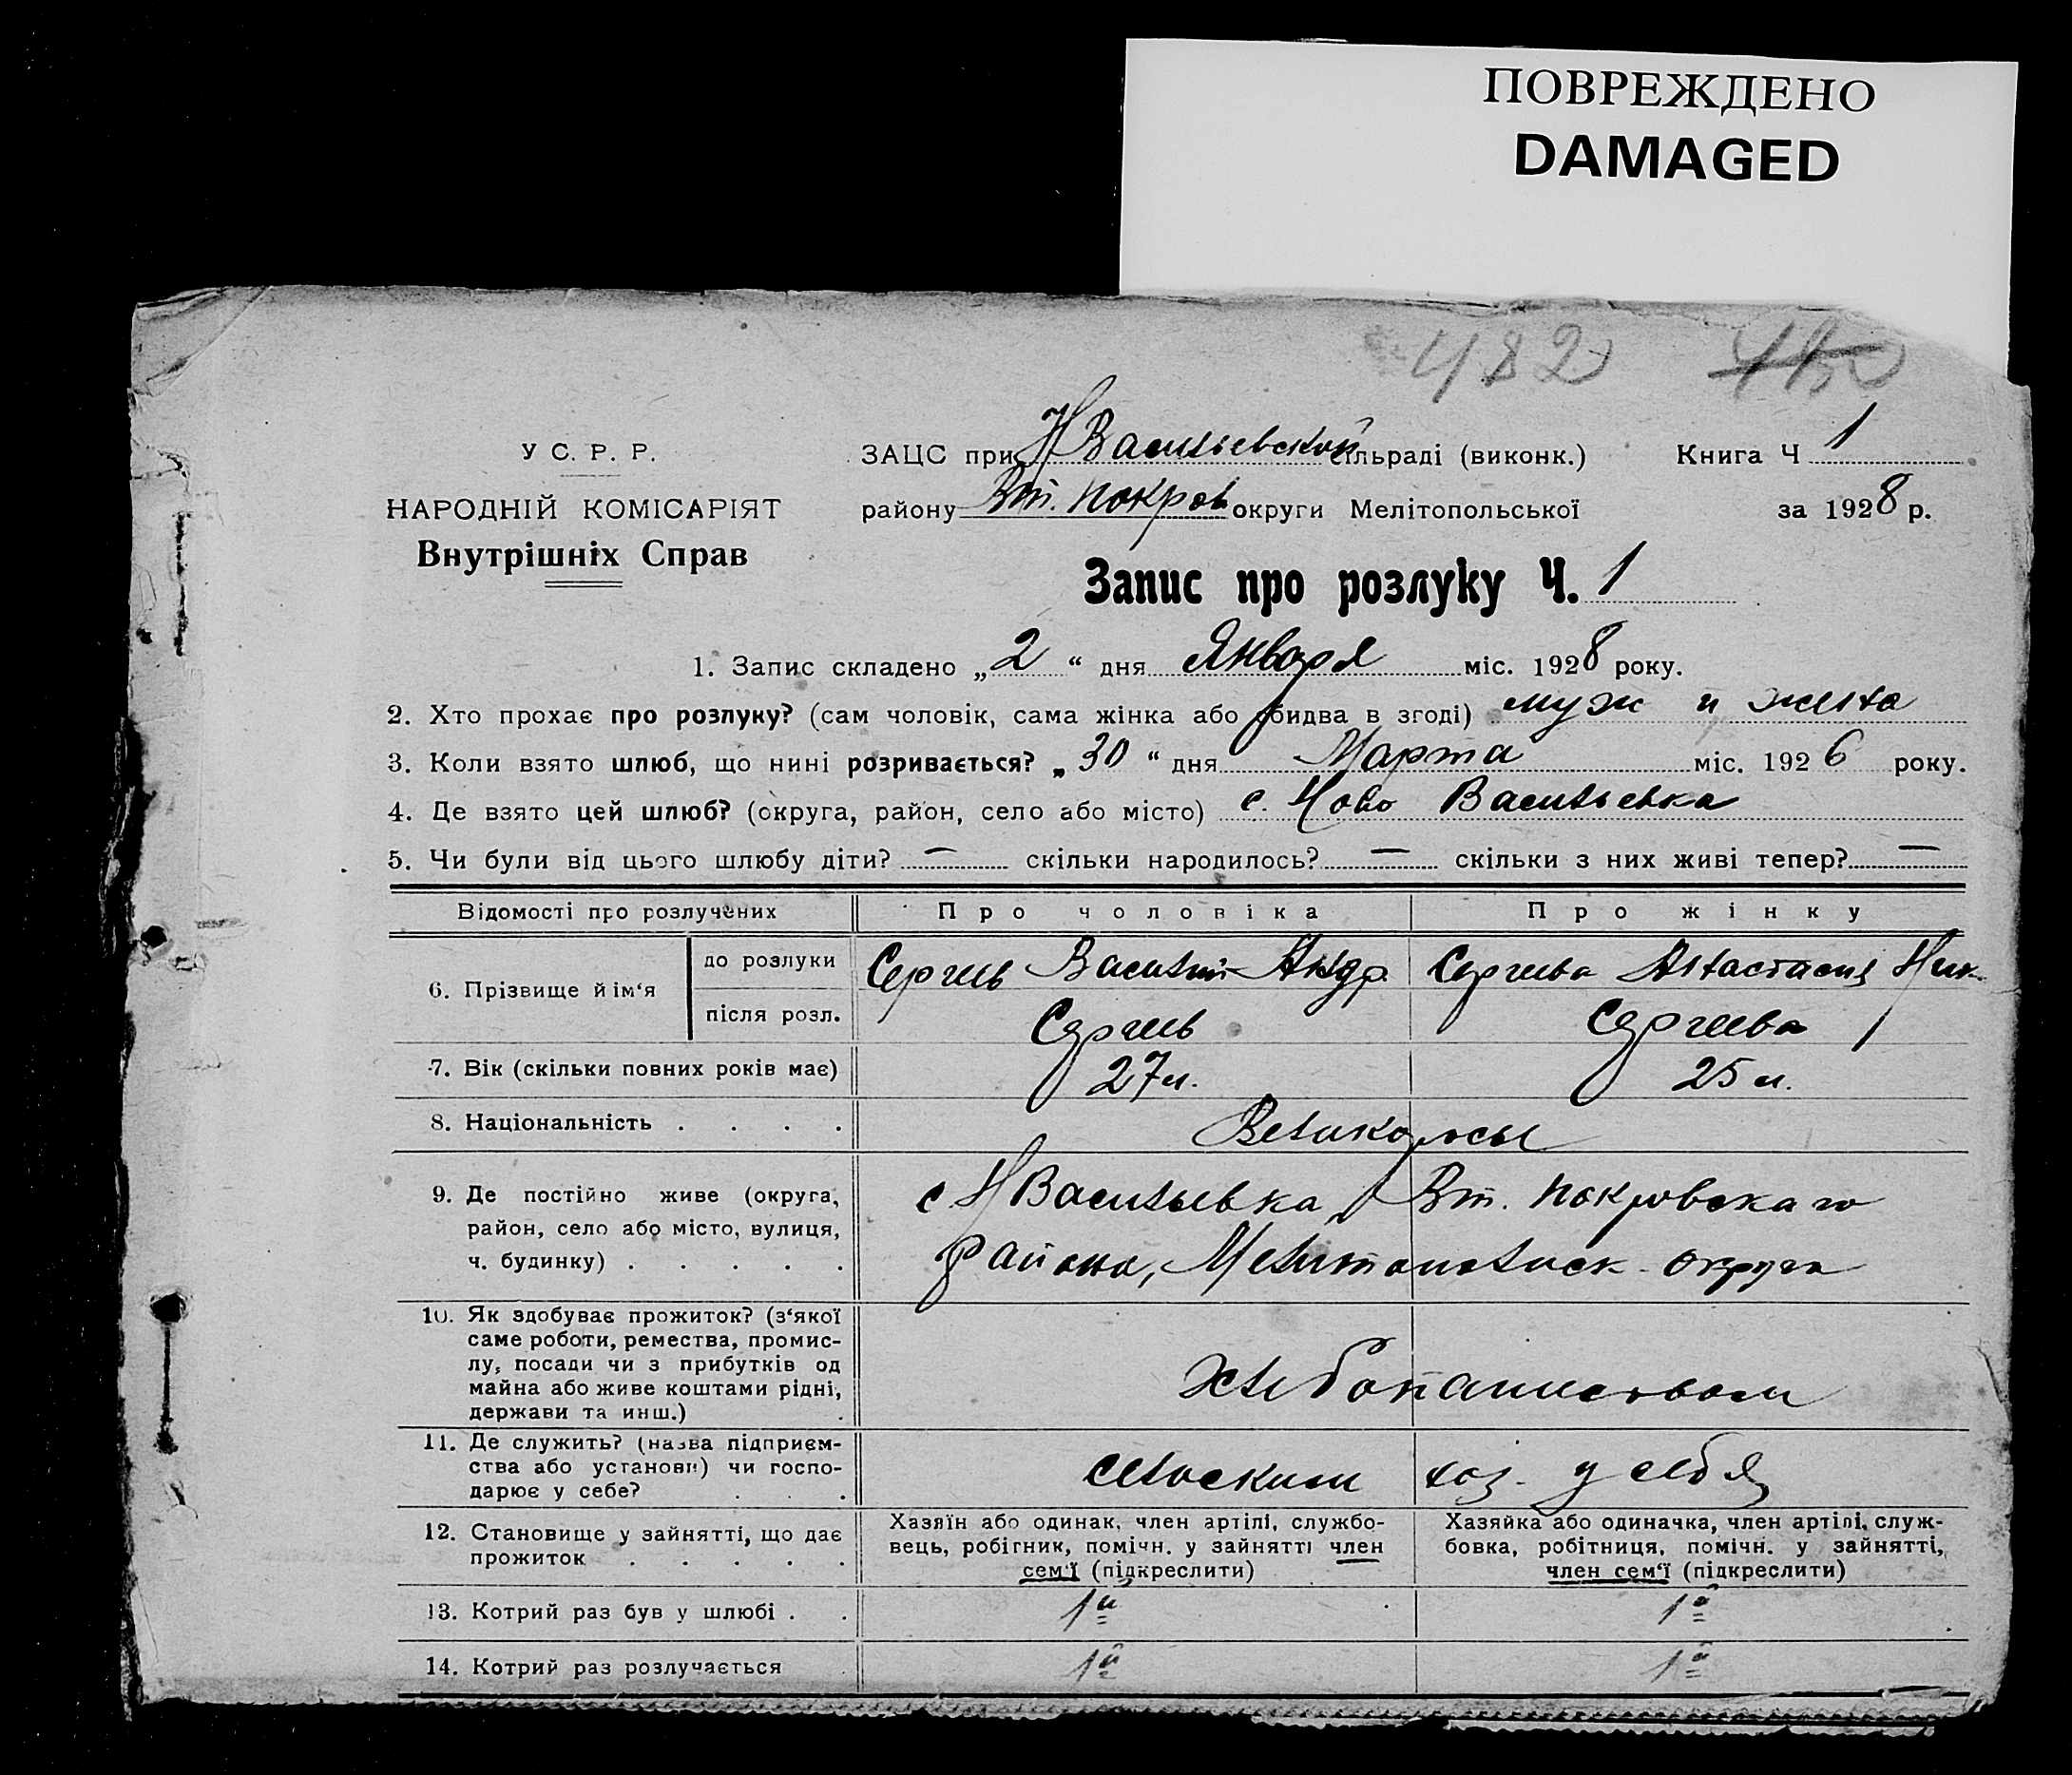 ПОВРЕЖДЕНО
DAMAGED
482
У С. Р. Р.
НАРОДНІЙ КОМІСАРІЯТ
Внутрішніх Справ
ЗАЦС при Н Васильевской сільраді (виконк.) Книга Ч 1
району Вт. Покров округи Мелітопольської за 1928 р.
Запис про розлуку Ч. 1
1. Запис складено „2“ дня Января міс. 1928 року.
2. Хто прохає про розлуку? (сам чоловік, сама жінка або обидва в згоді) муж и жена
3. Коли взято шлюб, що нині розривається? „30“ дня Марта міс. 1926 року.
4. Де взято цей шлюб? (округа, район, село або місто) с. Ново Васильевка
5. Чи були від цього шлюбу діти? — скільки народилось? — скільки з них живі тепер? —
Відомості про розлучених Про чоловіка Про жінку
6. Прізвище й ім‘я
до розлуки Сергеев Василий Андр. Сергеева Анастасия Ник.
після розл. Сергеев Сергеева
7. Вік (скільки повних років має) 27 л. 25 л.
8. Національність . . . . Великороссы
9. Де постійно живе (округа,
район, село або місто, вулиця,
ч. будинку) . . . . .
с. Н Васильевка, Вт. Покровскаго
района, Мелитопольск. округа
10. Як здобуває прожиток? (з‘якої
саме роботи, ремества, промис-
лу, посади чи з прибутків од
майна або живе коштами рідні,
держави та инш.) .
Хлебопашеством
11. Де служить? (назва підприєм-
ства або установи) чи госпо-
дарює у себе? . . .
сельским хоз. у себя
12. Становище у зайнятті, що дає
прожиток . . . . .
Хазяїн або одинак, член артілі, службо-
вець, робітник, помічн. у зайнятті член
сем‘ї (підкреслити)
Хазяйка або одиначка, член артілі, служ-
бовка, робітниця, помічн. у зайнятті,
член сем‘ї (підкреслити)
13. Котрий раз був у шлюбі . . 1й 1й
14. Котрий раз розлучається 1й 1й